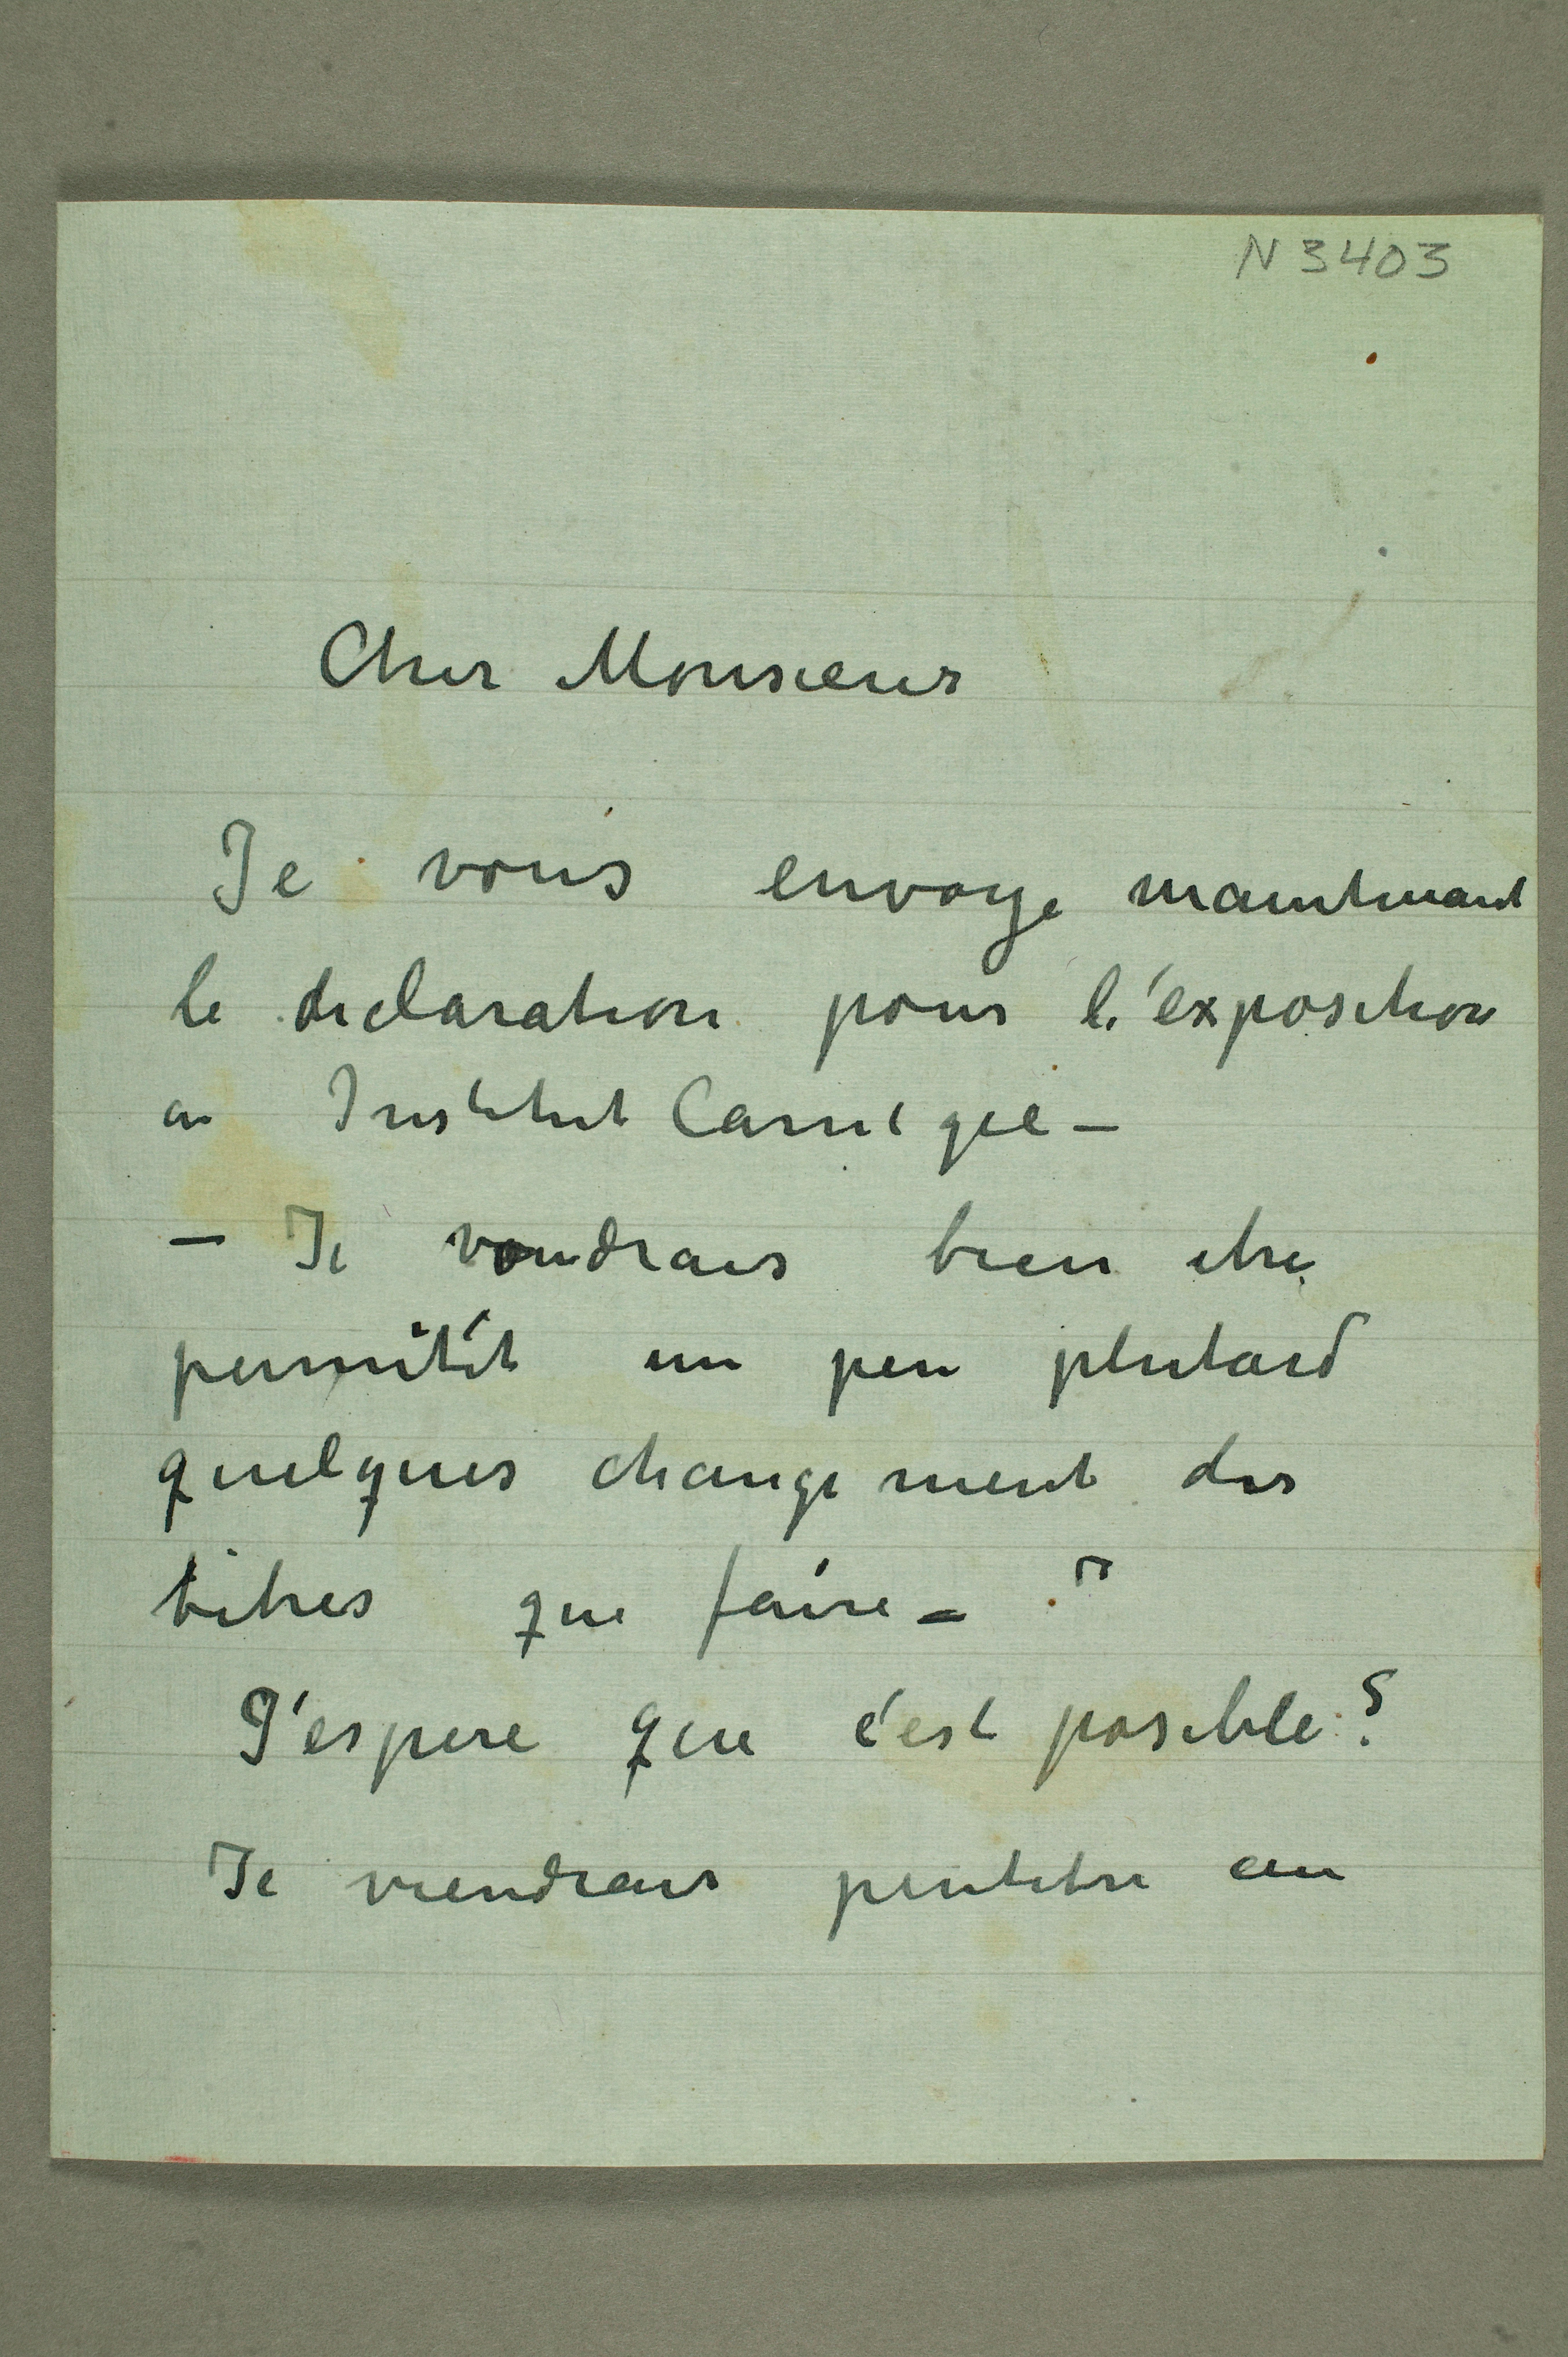 N 3403
Cher Monsieur
Je vous envoye maintenant
le declaration pour l'exposition
a Institut Carnegie –
– Je voudrais bien etre
permitét un peu plutard
quelques changement des
titres que faire –
J'espere que c'est posible?
Je viendrais peutetre au